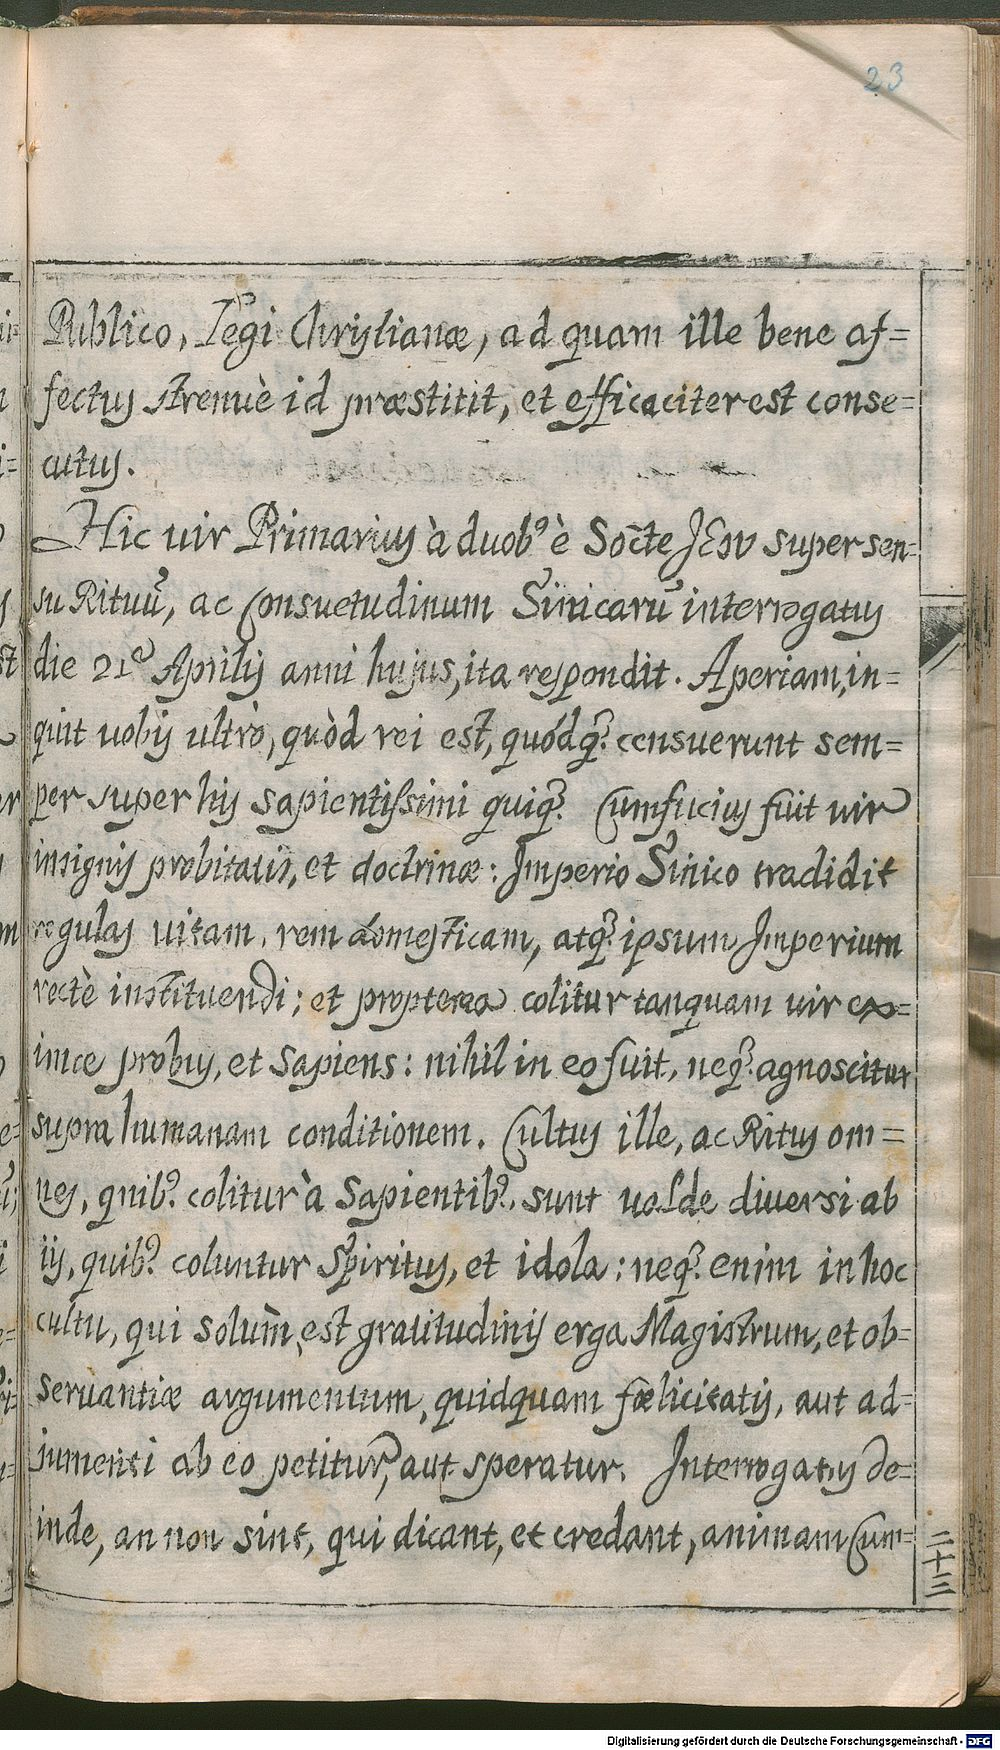 23
Publico, Legi Christianæ, ad quam ille bene af=
fectus strenuè id præstitit, et efficaciter est conse=
cutus.
Hic vir Primarius à duobꝰ è Soc̄te Jesu super sen=
su Rituū, ac Consuetudinum Sinicarū interrogatus
die 21ª Aprilis anni hujus, ita respondit. Aperiam, in=
quit vobis ultrò, quòd rei est, quódq́ue censuerunt sem=
per super his sapientissimi quiq́ue. Cumfucius fuit vir
insignis probitatis, et doctrinæ: Imperio Sinico tradidit
regulas vitam, rem domesticam, atq́ue ipsum Imperium
rectè instituendi; et propterea colitur tanquam vir ex=
imiæ probus, et Sapiens: nihil in eo fuit, neq́ue agnoscitur
supra humanam conditionem. Cultus ille, ac Ritus om=
nes, quibꝰ colitur à Sapientibꝰ, sunt valde diversi ab
iis, quibꝰ coluntur Spiritus, et idola: neq́ue enim in hoc
cultu, qui solùm est gratitudinis erga Magistrum, et ob=
servantiæ argumentum, quidquam fœlicitatis, aut ad=
jumenti ab eo petitur, aut speratur. Interrogatus de=
inde, an non sint, qui dicant, et credant, animam Cum=
二十三
Digitalisierung gefördert durch die Deutsche Forschungsgemeinschaft - DFG